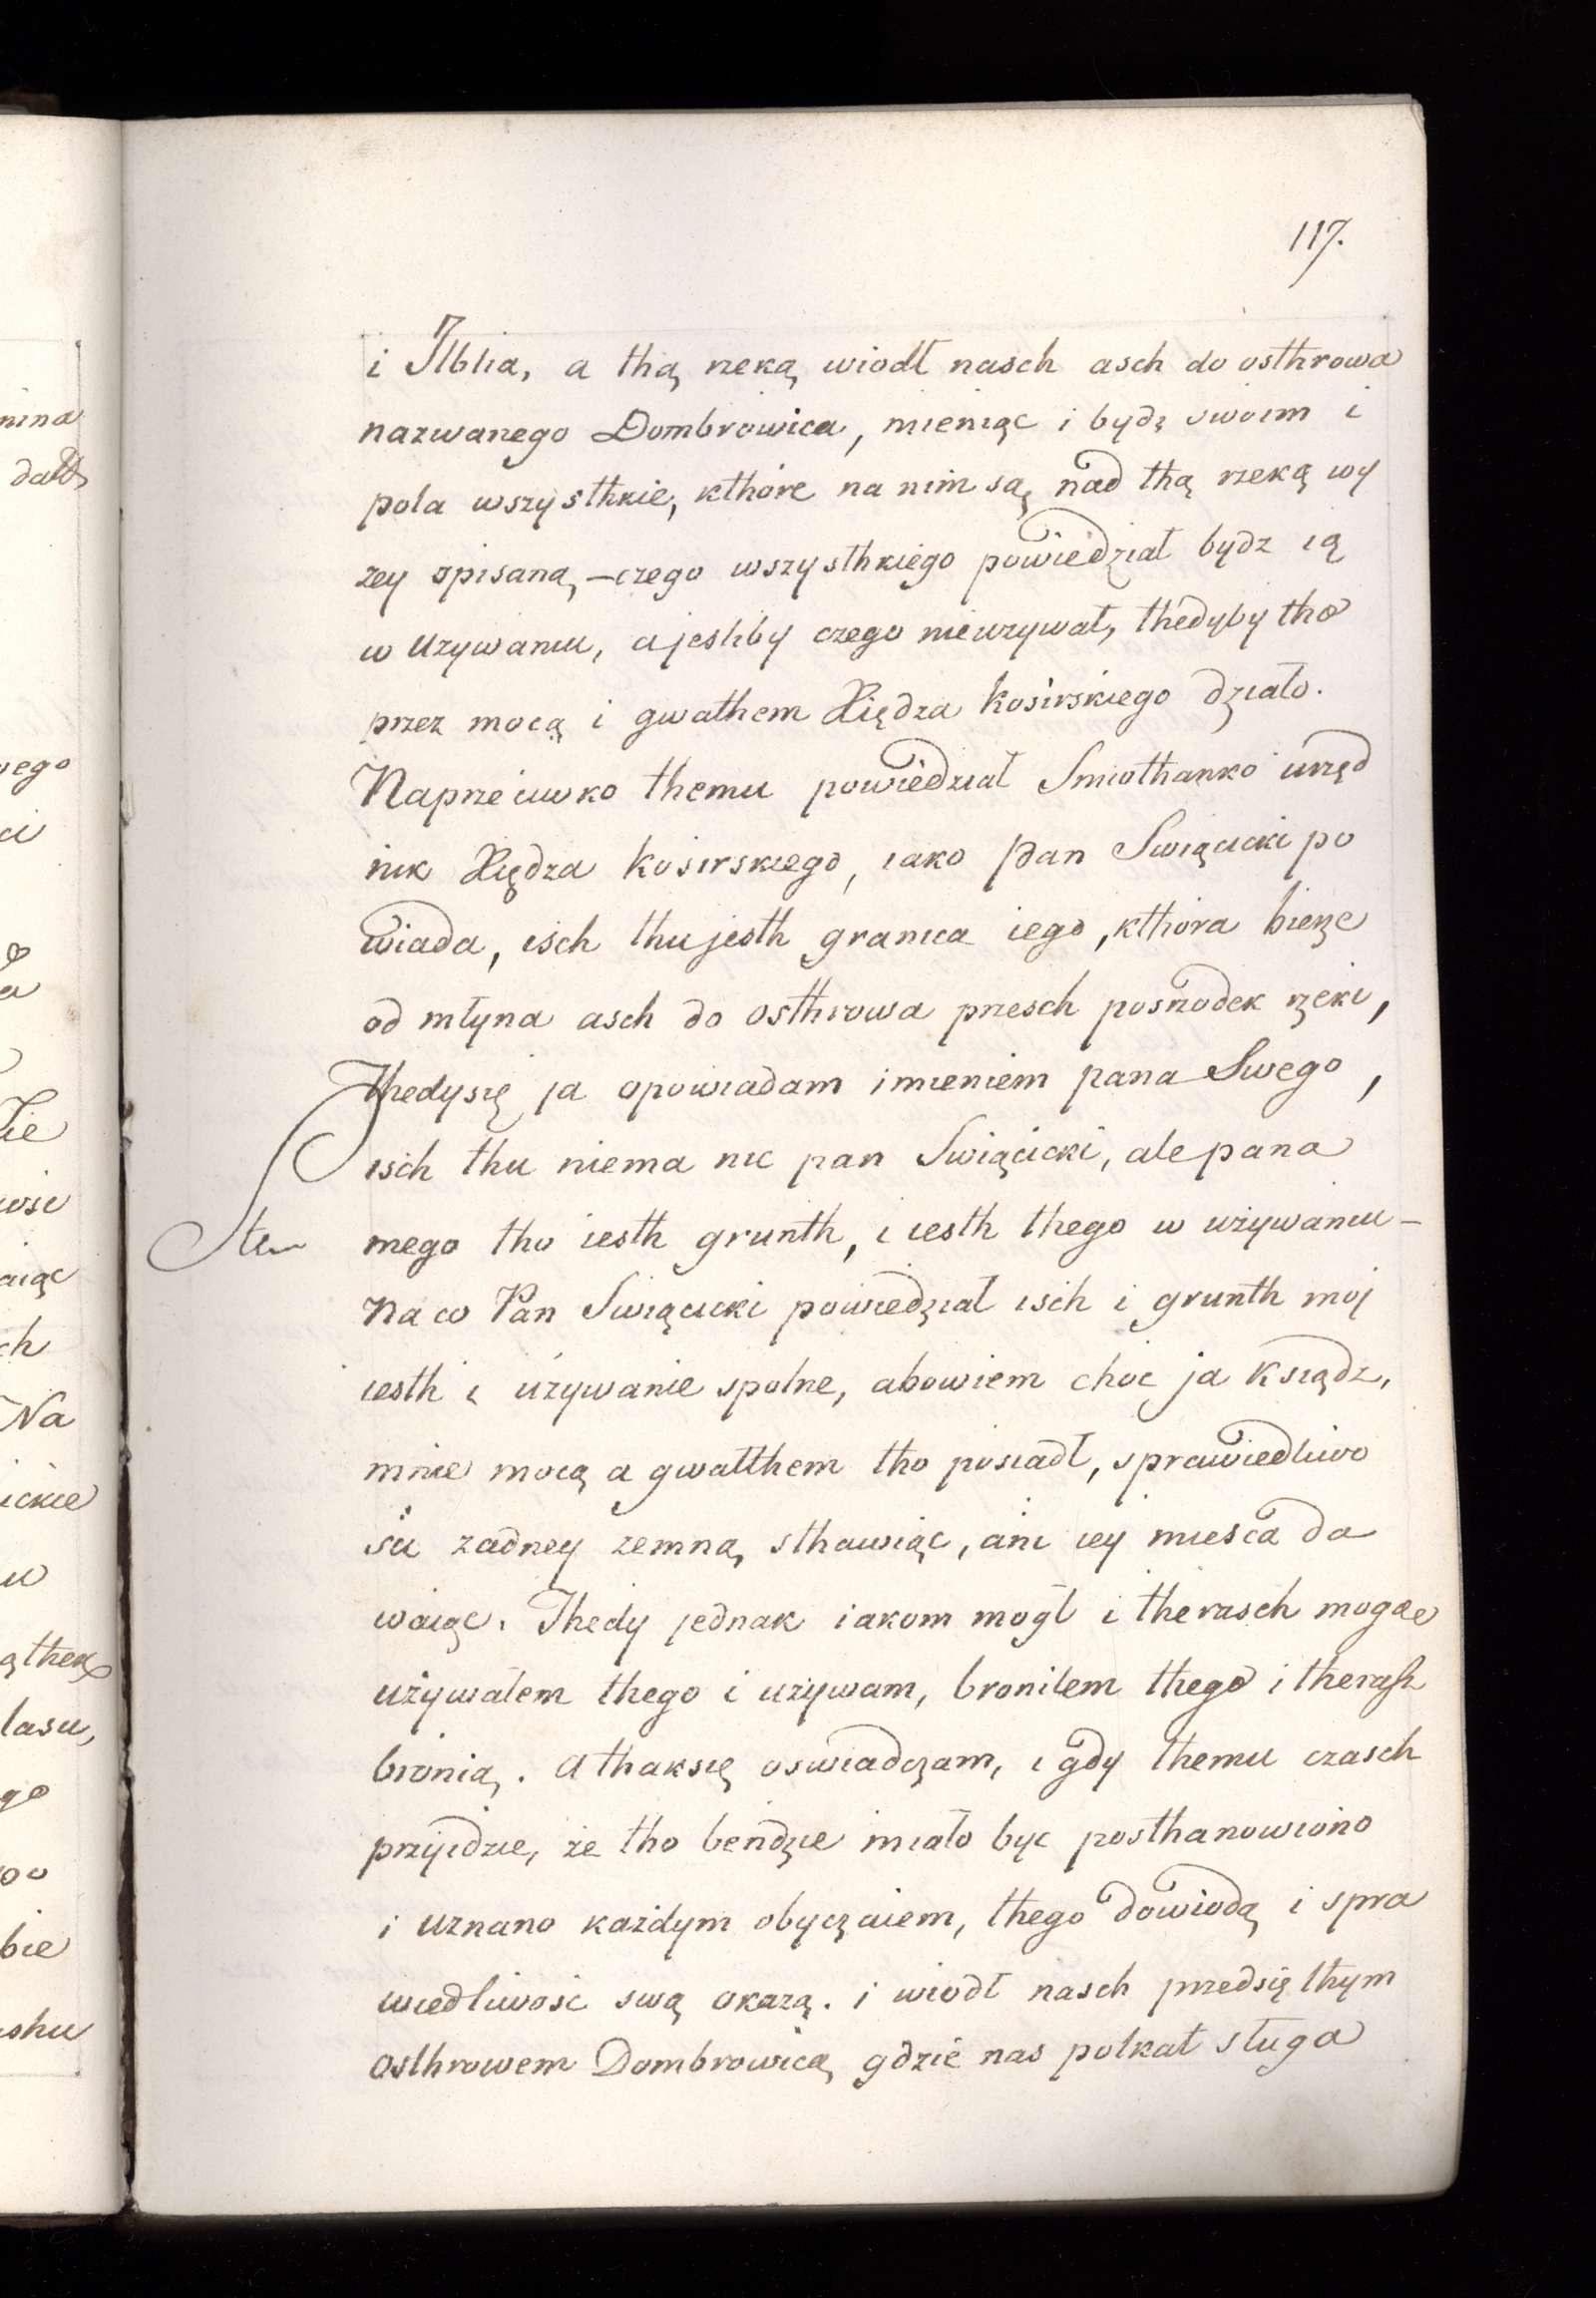 117.
i Jlblia, a thą rzeką wiodł nasch asch do osthrowa
nazwanego Dombrowica, mieniąc i bydź swoim i
pola wszysthkie, kthóre na nim są, nad thą rzeką wy
zey spisaną,—czego wszysthkiego powiedział bydz ią
w uzywaniu, a jesliby czego nieuzywał, thedyby tho
przez mocą i gwałthem Xiędza Kosirskiego działo.
Naprzeciwko themu powiedział Smiothanko urzęd
nik Xiędza Kosirskiego, iako Pan Swiącicki po
wiada, isch thu jesth granica iego, kthóra bierze
od młyna asch do osthrowa przesch posrzodek rzeki,
Thedysię ja opowiadam imieniem pana Swego,
isch thu niema nic pan Swiącicki, ale pana
mego tho iesth grunth, i iesth thego w używaniu—
Na co Pan Swiącicki powiedział isch i grunth moj
iesth i używanie spolne, abowiem choc ja Ksiądz,
mnie mocą a gwałthem tho posiadł, sprawiedliwo
sci zadney zemną sthawiąc, ani iey miesca da
waiąc. Thedy jednak iakom mógł i therasch mogąc
używałem thego i używam, broniłem thego i therash
bronią. A thaksię oswiadczam, i gdy themu czasch
przyidzie, że tho bendzie miało byc posthanowiono
i uznano każdym obyczaiem, thego dowiodą i spra
wiedliwośc swą okazą. i wiodł nasch przedsię thym
osthrowem Dombrowicą, gdzie nas potkał sługa
nina
vego
ci
a
Zie
wsc
aiąc
ch
Na
ickie
w
lasu,
go
bie
shu